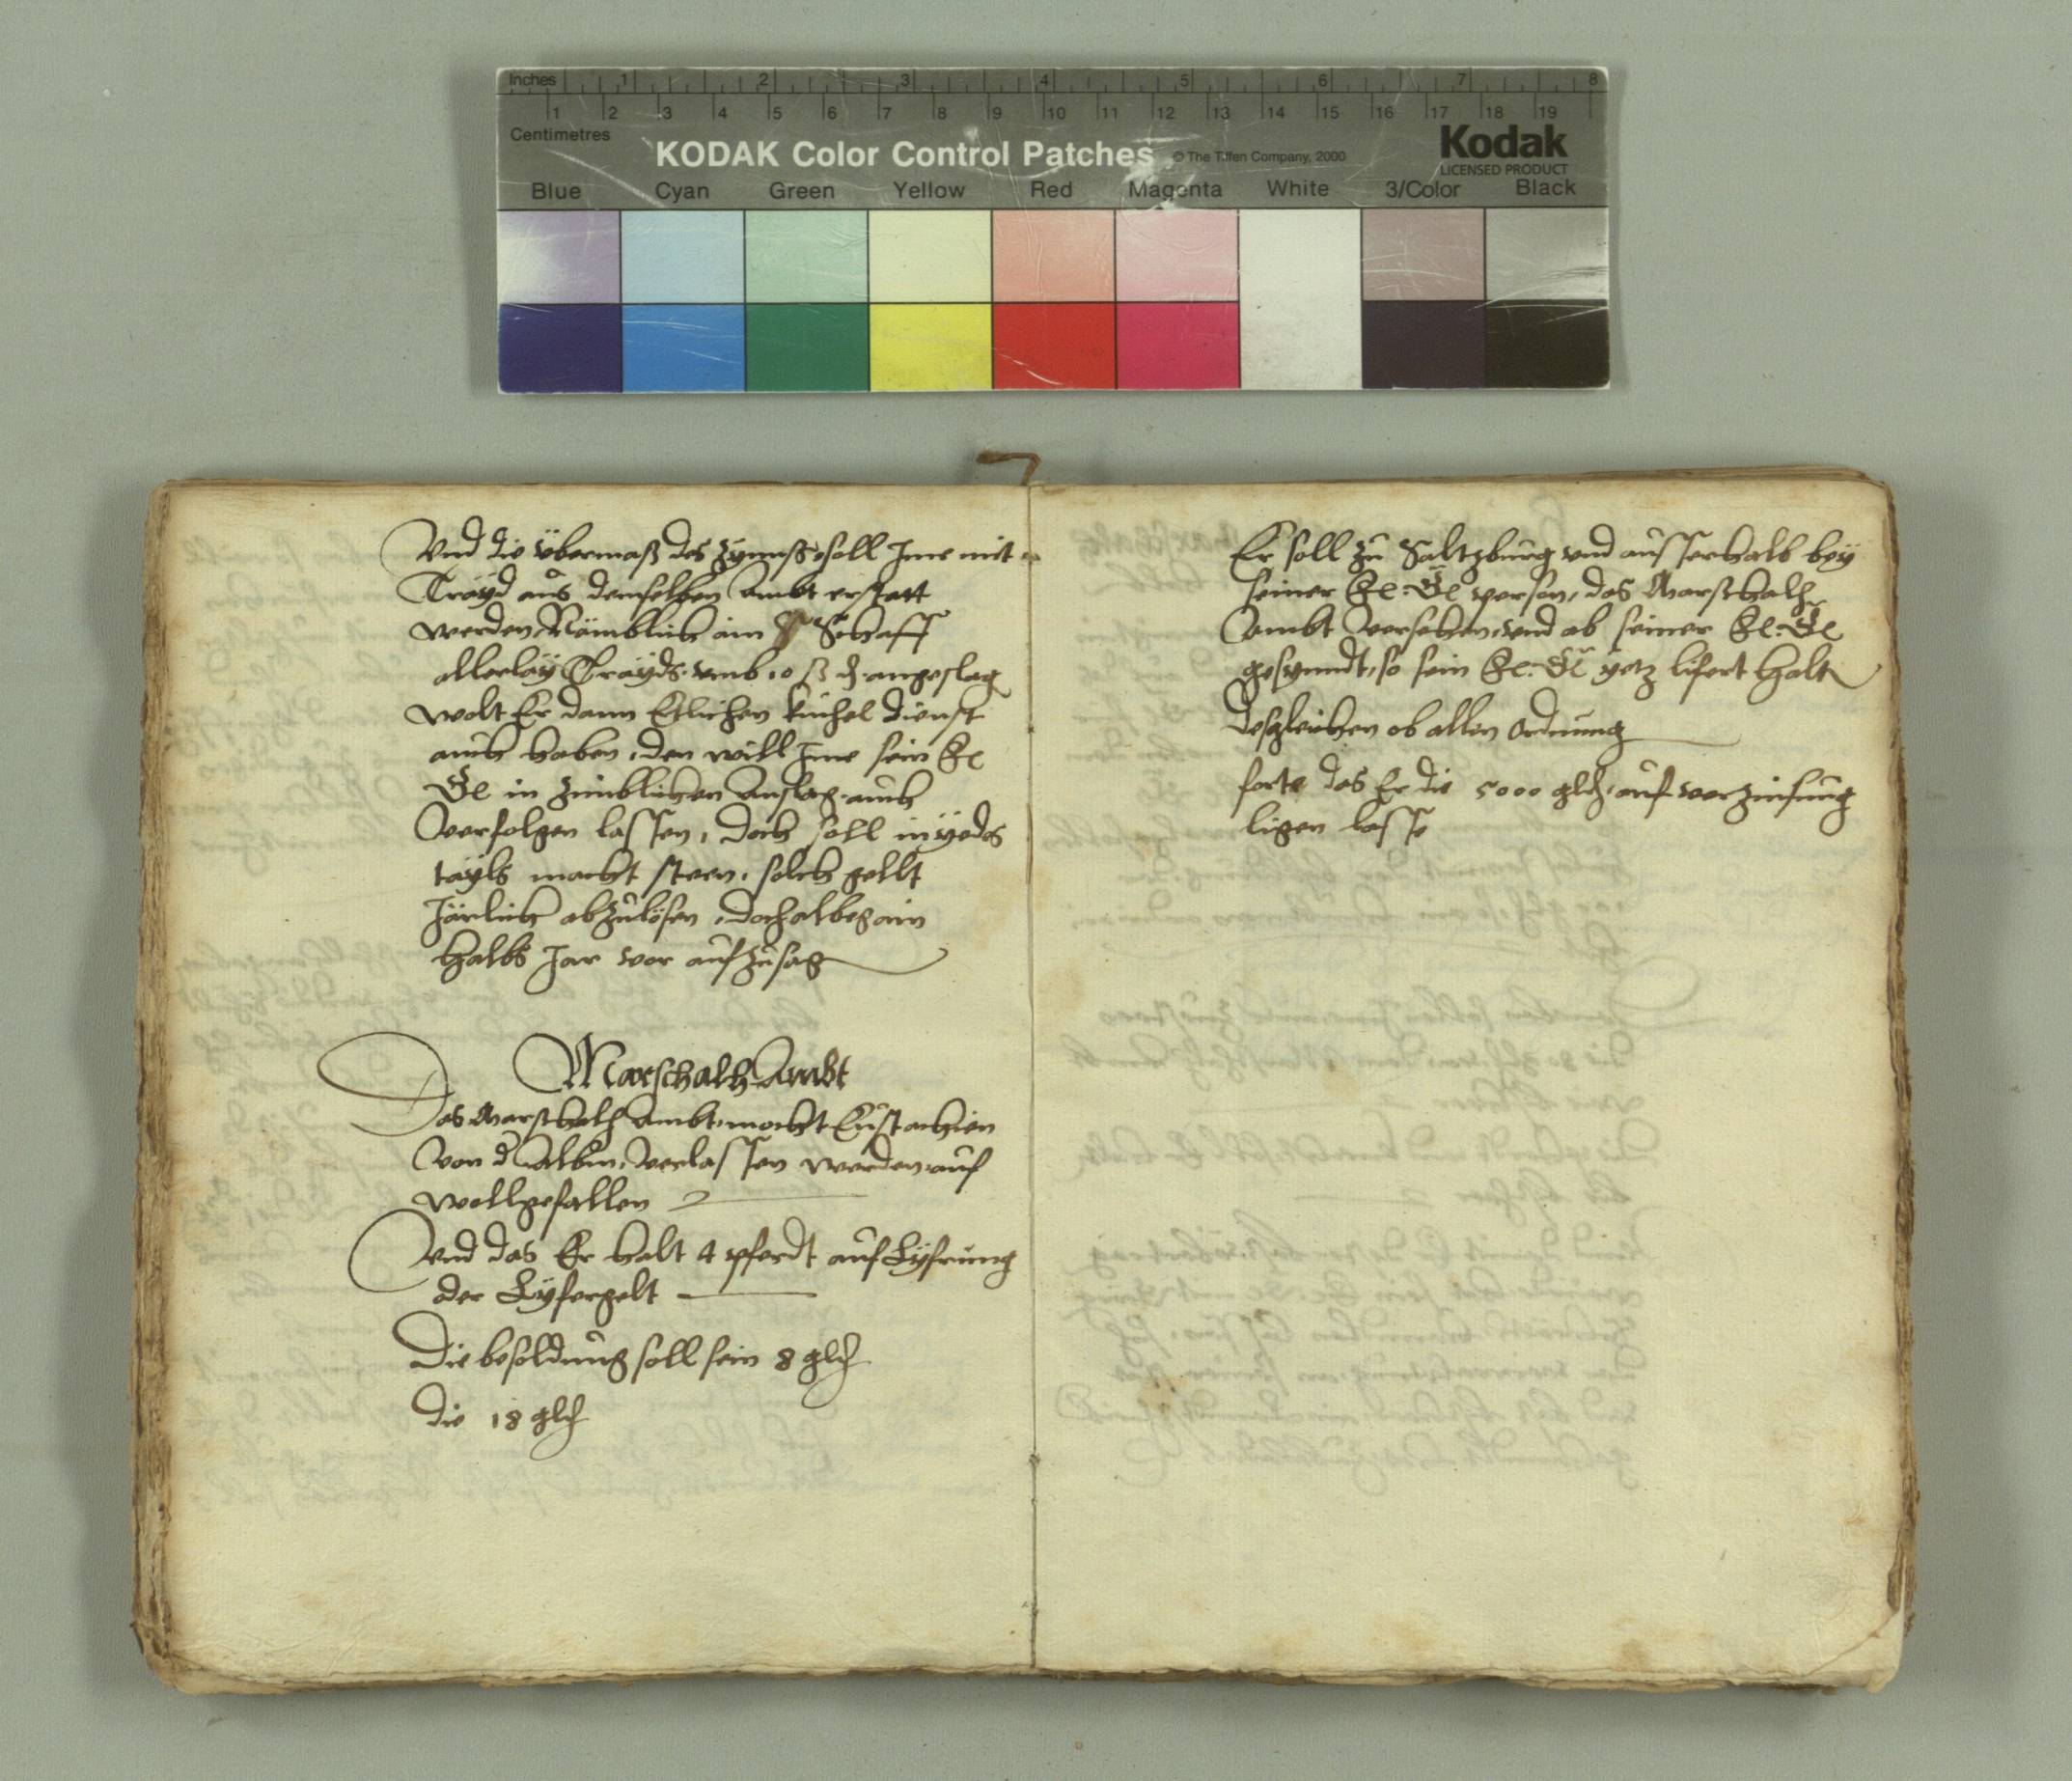 Inches 1 2 3 4 5 6 7 8
1 2 3 4 5 6 7 8 9 10 11 12 13 14 15 16 17 18 19
Centimetres
KODAK Color Control Patches © The Tiffen Company, 2000 Kodak
LICENSED PRODUCT
Blue Cyan Green Yellow Red Magenta White 3/Color Black
Vnd die übermaß des zynnß soll Jme mit
Trayd aus demselben Ambt erstatt
werden Nämblich ain Schaff
allerlay Trayds vmb 10 ß ₰ angeslag
wolt Er dann Etlichen kuchel dienst
auch haben, den will Jme sein F
G in zimblichen Anslag auch
Verfolgen lassen, doch soll in yeds
tayls macht steen, solch gellt
Järlich abzulösen, doch albeg ain
halbs Jar vor aufzusag
Marschalh Ambt
Das Marschalh Ambt mocht Eustachien
Von d Albm, Verlassen werden auf
wollgefallen
Vnd das Er halt 4 pferdt auf Lyfrung
oder Lyfergelt
Die besoldung soll sein 8 gld
die 18 gld
Er soll zu Saltzburg vnd ausserhalb bey
seiner F G person, das Marschalh
Ambt Versehen, vnd ob seiner F G
gesynndt, so sein F G yetz lifert halt
desgleichen ob allen Ordnung
forte das Er die 5000 gld auf verzinsung
ligen lasse